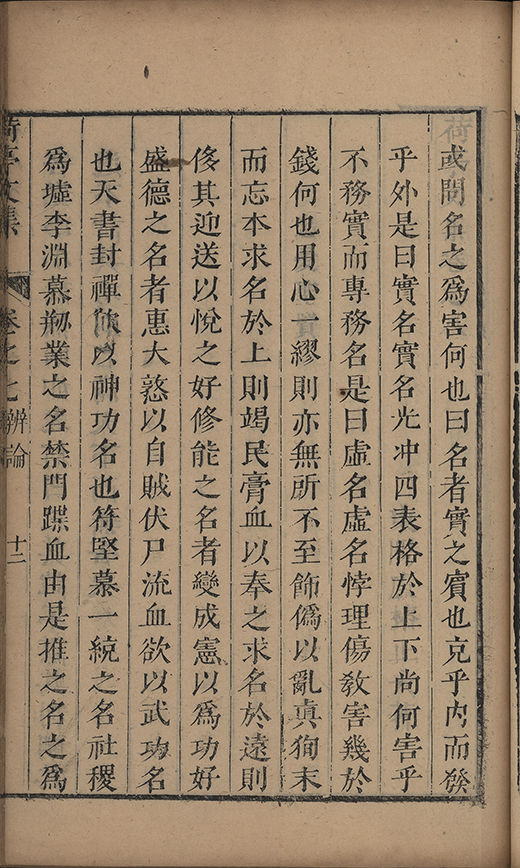 或問名之爲害何也曰名者實之賓也克乎内而發
乎外是曰實名實名光冲四表格於上下尚何害乎
不務實而專務名是曰虛名虛名悖理傷教害幾於
錢何也用心一繆則亦無所不至飾僞以亂真狥末
而忘本求名於上則竭民膏血以奉之求名於遠則
侈其迎送以悅之好修能之名者變成憲以爲功好
盛德之名者惠大憝以自賊伏尸流血欲以武功名
也天書封禪欲以神功名也符堅慕一統之名社稷
爲墟李淵慕刱業之名禁門蹀血由是推之名之爲
荷亭文集 卷之七 辨論 十二